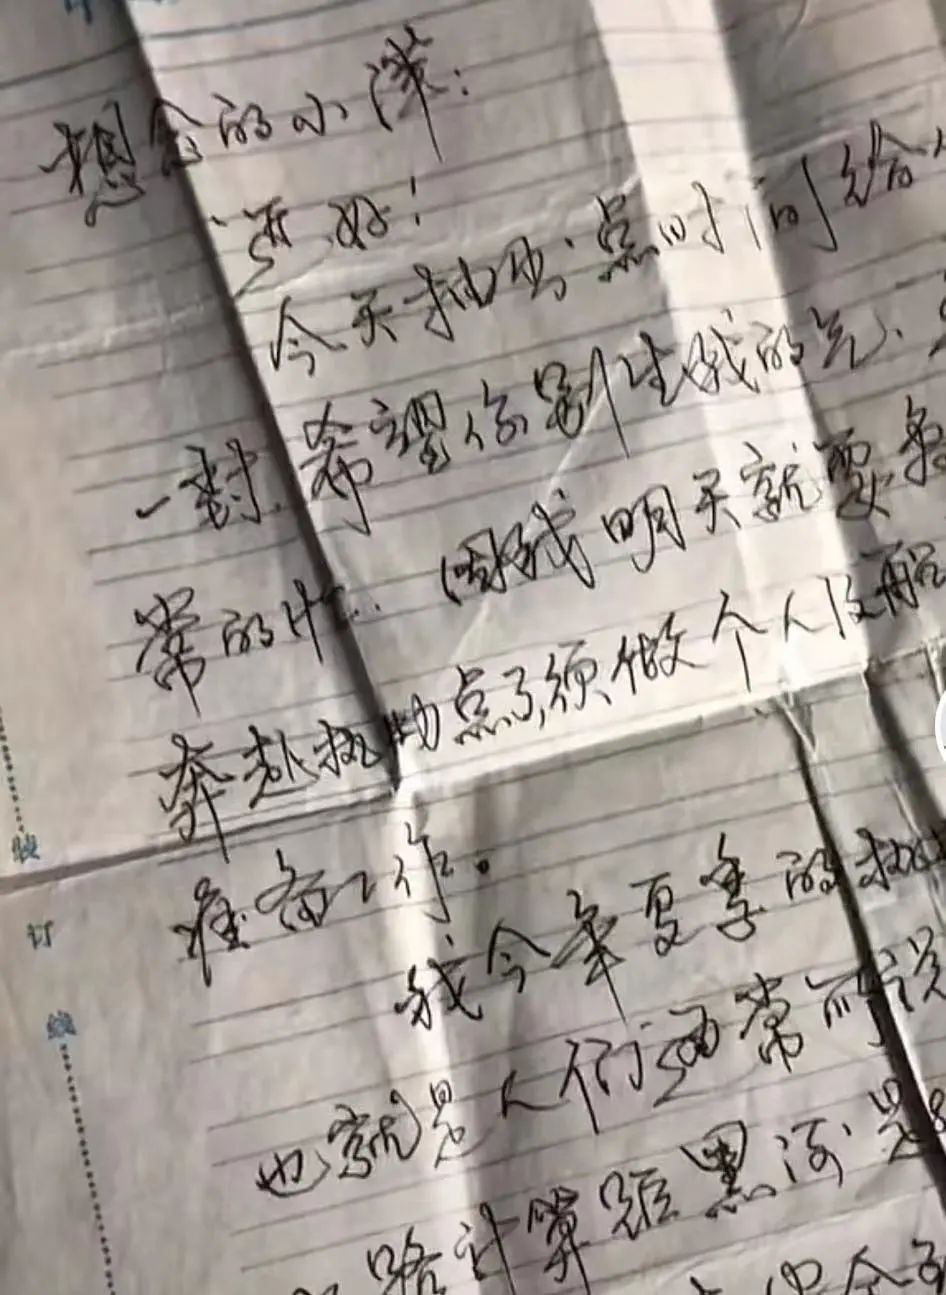 想念的小萍:
还好!
今天抽出点时间给
一封、希望你别生我的气、
常的忙.. 因我明天就要
奔赴执勤点了,须做个人
准备工作。
我今年夏季的执
也就是人们通常所说
路计算距黑河
装
订
线